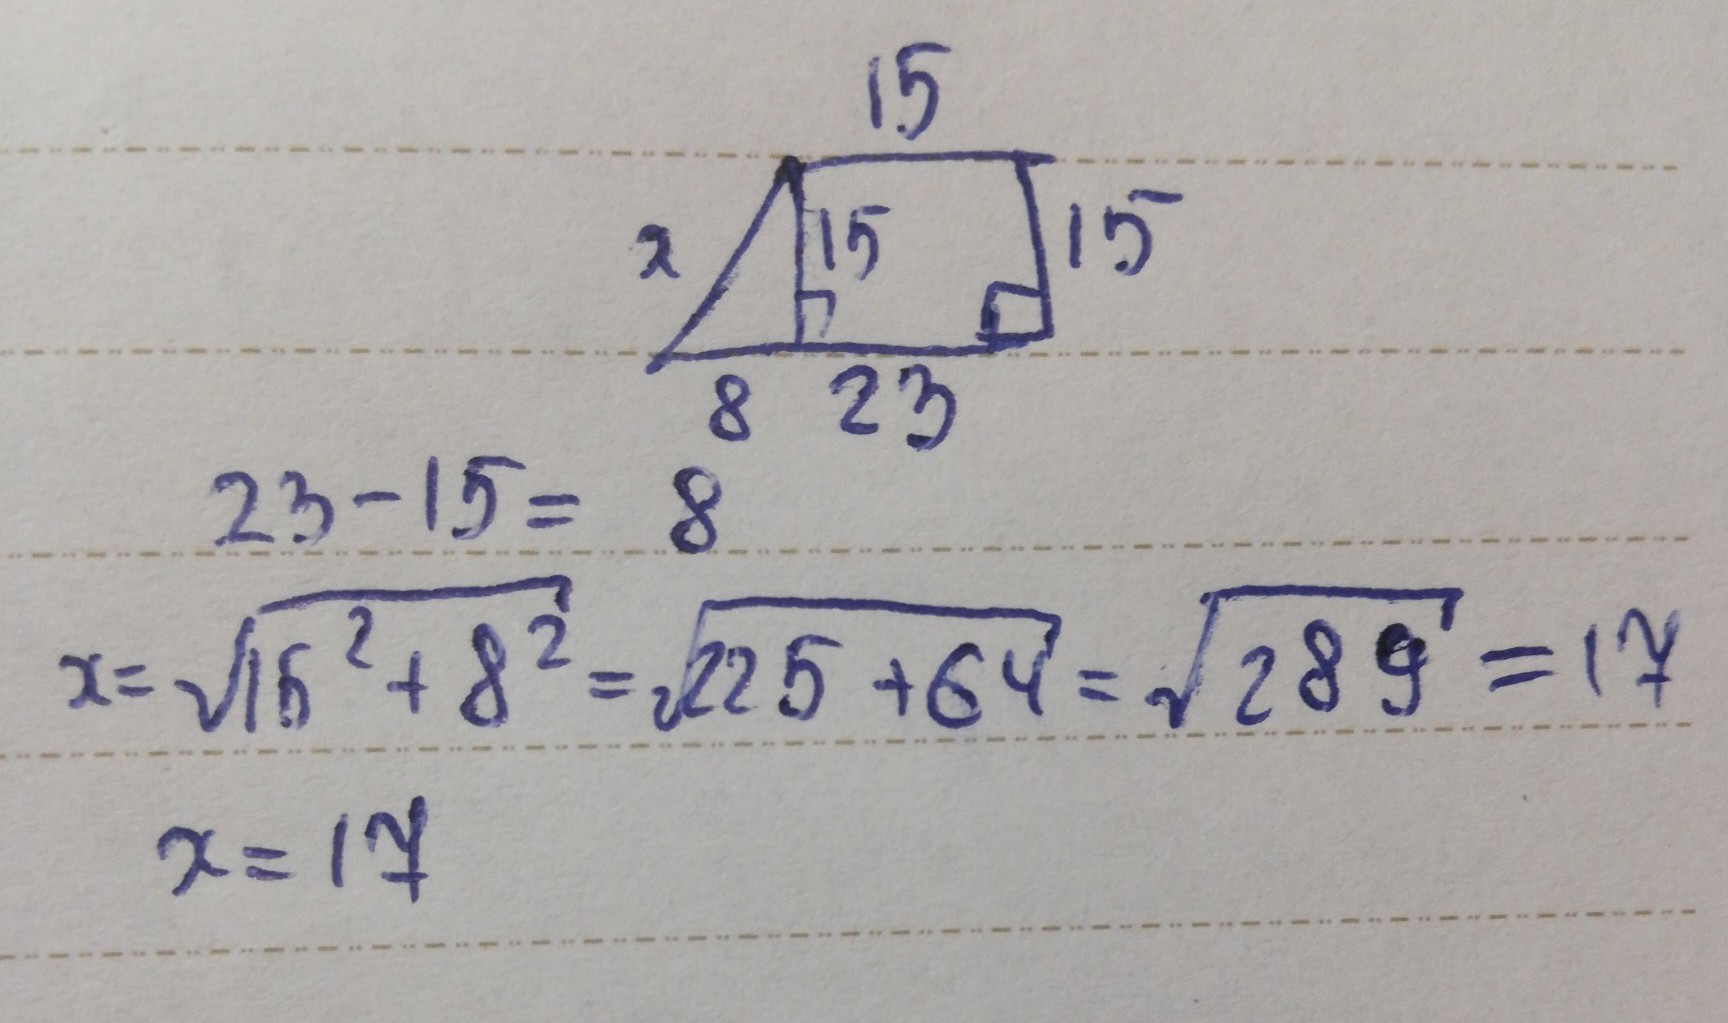 15
x 15 15
8 23
23-15= 8
x=√15²+8²=√225+64=√289=17
x=17